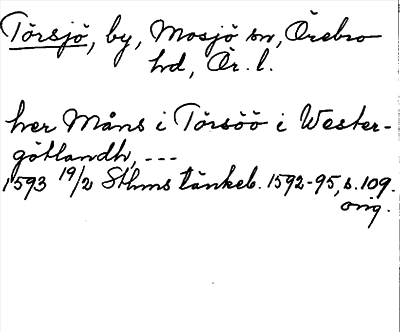 Törsjö, by, Mosjö sn, Örebro
hd, Ör. l.
her Måns i Törsöö i Wester-
götlandh, ---
1593 19/2 Sthms tänkeb. 1592-95, s. 109.
orig.